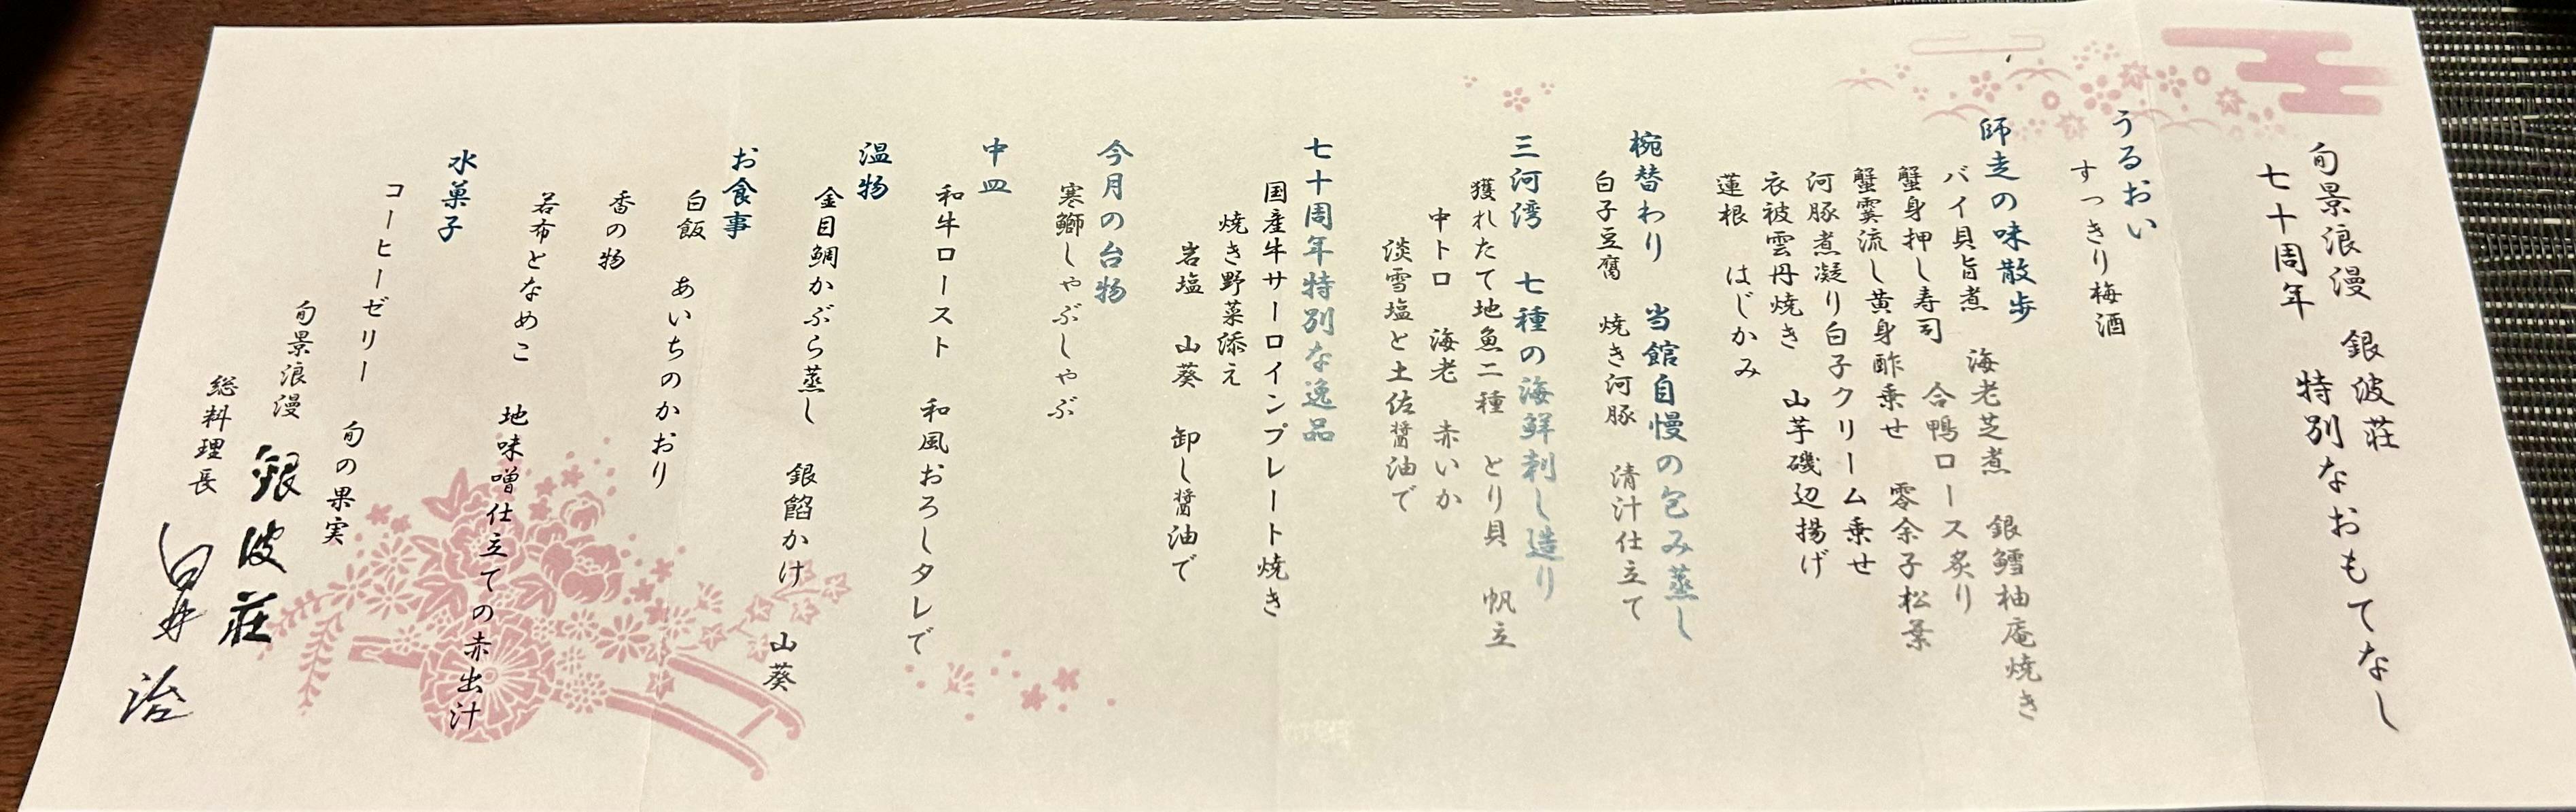 旬景浪漫　銀波荘
七十周年　特別なおもてなし
うるおい
すっきり梅酒
師走の味散歩
海老芝煮　銀鱈柚庵焼き
バイ貝旨煮　合鴨ロース炙り
蟹身押し寿司　零余子松葉
蟹霙流し黄身酢乗せ
河豚煮凝り白子クリーム乗せ
衣被雲丹焼き　山芋磯辺揚げ
蓮根　はじかみ
椀替わり　当館自慢の包み蒸し
白子豆腐　焼き河豚　清汁仕立て
三河湾　七種の海鮮刺し造り
獲れたて地魚二種　とり貝　帆立
中トロ　海老　赤いか
淡雪塩と土佐醤油で
七十周年特別な逸品
国産牛サーロインプレート焼き
焼き野菜添え
岩塩　山葵　卸し醤油で
今月の台物
寒鰤しゃぶしゃぶ
中皿
和牛ロースト　和風おろしタレで
温物
金目鯛かぶら蒸し　銀餡かけ　山葵
お食事
白飯　あいちのかおり
香の物
若布となめこ　地味噌仕立ての赤出汁
水菓子
コーヒーゼリー　旬の果実
旬景浪漫　銀波荘
総料理長　白井　治